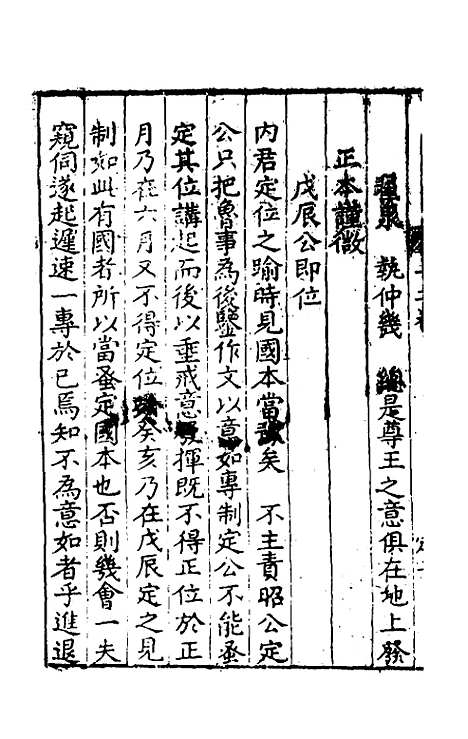 執仲幾 總是尊王之意俱在地上發
正本謹微
戊辰公即位
內君定位之踰時見國本當矣 不主責昭公定
公只把魯事為後鑒作文以意如專制定公不能蚤
定其位講起而後以垂戒意發揮既不得正位於正
月乃在六月又不得定位癸亥乃在戊辰定之見
制如此有國者所以當蚤定國本也否則幾會一失
窺伺遂起遲速一專於已焉知不為意如者乎進退